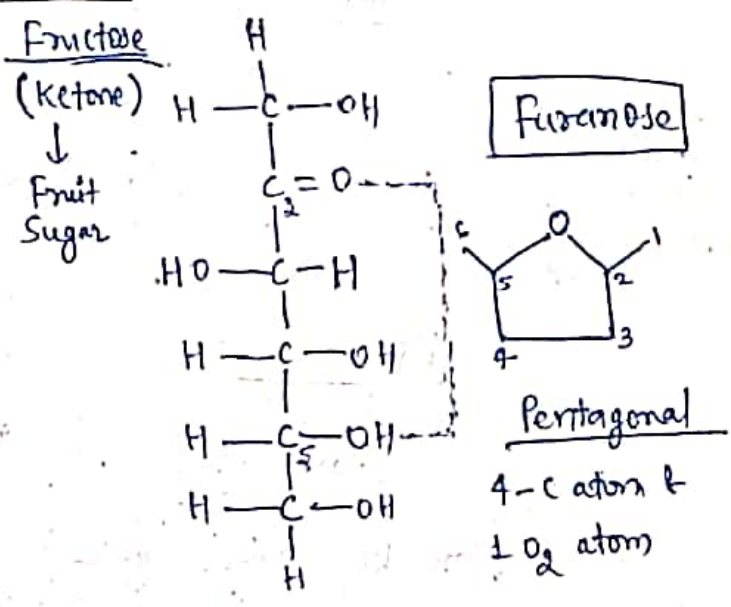 Fructose
(Ketone)
↓
Fruit
Sugar
H
H — C — OH
C = O
2
HO — C — H
H — C — OH
H — C — OH
5
H — C — OH
H
Furanose
O
6 1
5 2
4 3
Pentagonal
4-C atom &
1 O2 atom